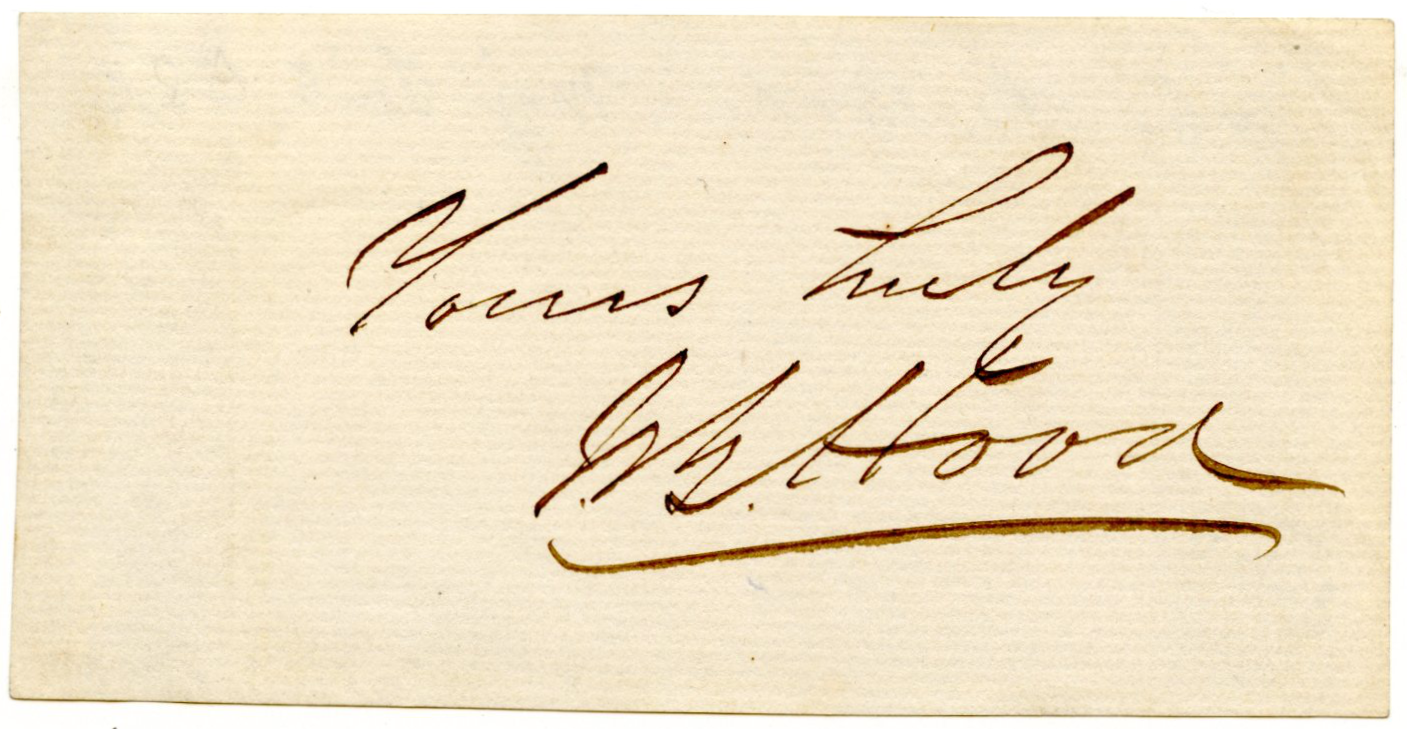 Yours truly
J.B. Hood